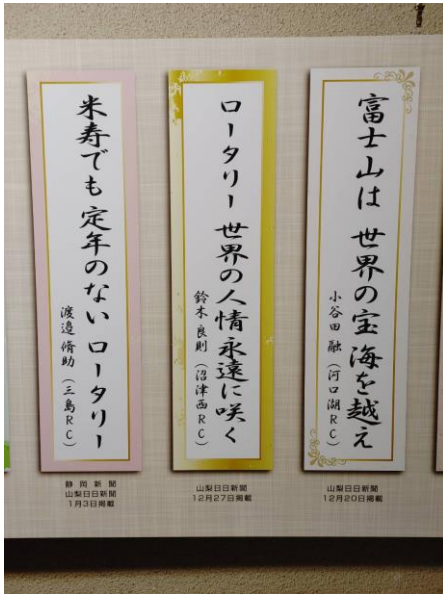 富士山は 世界の宝 海を越え
小谷田 融（河口湖RC）
山梨日日新聞
12月20日掲載
ロータリー 世界の人情 永遠に咲く
鈴木 良則（沼津西RC）
山梨日日新聞
12月27日掲載
米寿でも 定年のない ロータリー
渡邉 脩助（三島RC）
静岡新聞
山梨日日新聞
1月3日掲載